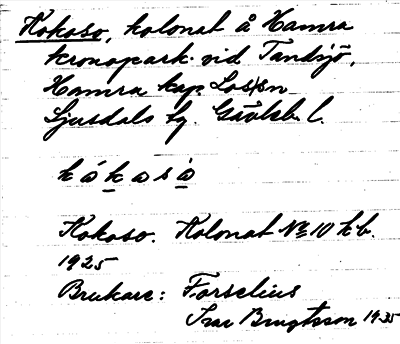 Kokoso, kolonat å Hamra
kronopark vid Tandsjö,
Hamra kap. Los sn
Ljusdals tg. Gävleb. l.
kå̀kasà
Kokoso. Kolonat № 10 kb.
1925
Brukare: Forselius
Isac Bengtsson 1935